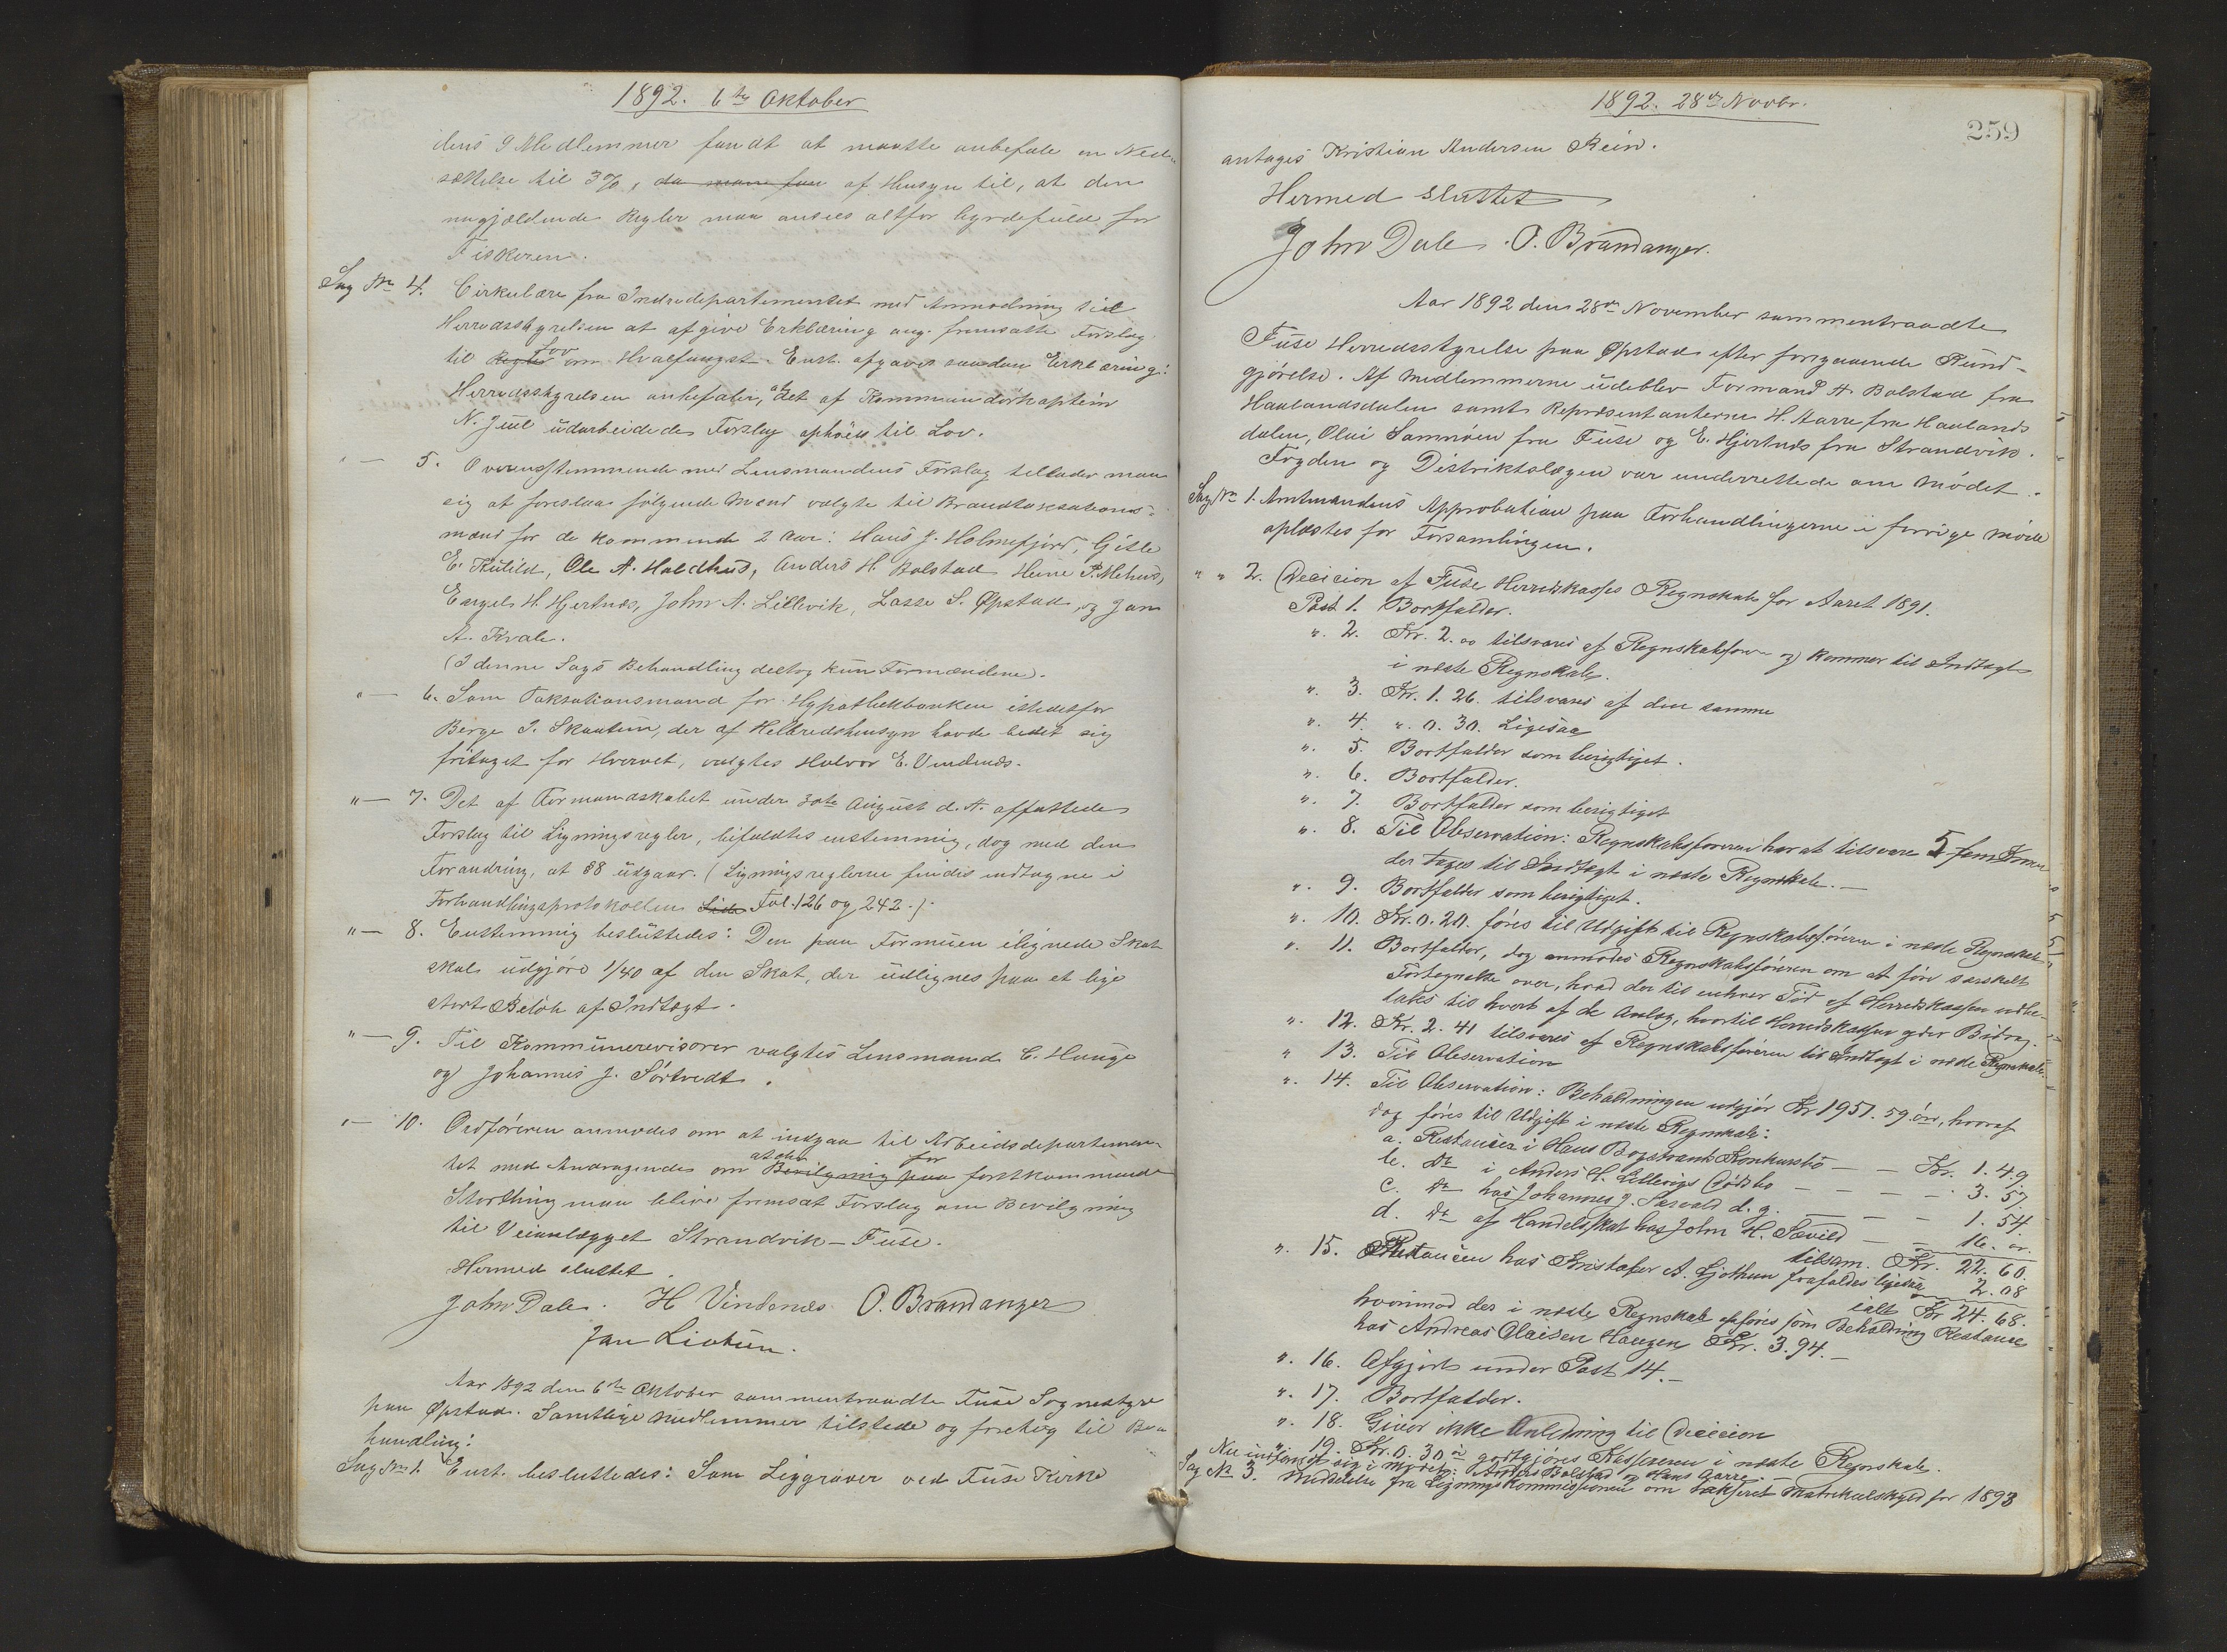 1892. 6te Oktober
dens 9 Medlemmer fandt at maatte anbefale en Ned-
sættelse til 3%, da man fan af Hensyn til, at den
nugjældende Regler maa ansees altfor byrdefuld for
Fiskeren.
Sag No 4. Cirkulære fra Indredepartementet med Anmodning til
Herredsstyrelsen at afgive Erklæring ang. fremsatte Forslag
til Regler Lov om Hvalfangst. Enst. afgaves saadan Erklæring:
Herredsstyrelsen anbefaler, at det af Kommandørkaptein
N. Juel udarbeidede Forslag ophøies til Lov.
" — 5. Overensstemmende med Lensmandens Forslag tillader man
sig at foreslaa følgende Mænd valgte til Brandtaxations-
mænd for de kommende 2 Aar: Hans J. Holmefjord, Gitle
E. Kulild, Ole A. Holdhus, Anders H. Bolstad Heine P. Mehus,
Engel H. Hjertnæs, John N. Lillevik, Lasse S. Øpstad og Jan
A. Kvale.
(I denne Sags Behandling deltog kun Formændene).
" — 6. Som Taksationsmand for Hypothekbanken istedetfor
Berge I. Skaatun, der af Helbredshensyn havde bedet sig
fritaget for Hvervet, valgtes Halvor E. Vindenæs.
" — 7. Det af Formandskabet under 30te August d. A. affattede
Forslag til Ligningsregler, bifaldtes enstemmig, dog med den
Forandring, at §8 udgaar. (Ligningsreglerne findes indtagne i
Forhandlingsprotokollen Side Fol. 126 og 242.).
" — 8. Enstemmig besluttedes: Den paa Formuen ilignede Skat
skal udgjøre 1/40 af den Skat, der udlignes paa et lige
stort Beløb af Indtægt.
" — 9. Til Kommunerevisorer valgtes Lensmand C. Hauge
og Johannes J. Sørtvedt.
" — 10. Ordføreren anmodes om at indgaa til Arbeidsdepartemen-
tet med Andragendes om Bevilgning paa at der for førstkommende
Storthing maa blive fremsat Forslag om Bevilgning
til Veianlægget Strandvik – Fuse.
Hermed sluttet.
John Dale. H Vindenæs O. Brandanger
Jan Liatun.
Aar 1892 den 6te Oktober sammentraadte Fuse Sognestyre
paa Øpstad. Samtlige Medlemmer tilstede og foretog til Be-
handling:
Sag No 1. Enst. besluttedes: Som Liggraver ved Fuse Kirke
1892. 28de Novbr.
259
antages Kristian Andersen Rein.
Hermed sluttet
John Dale. O. Brandanger.
Aar 1892 den 28de November sammentraadte
Fuse Herredsstyrelse paa Øpstad efter foregaaende Kund-
gjørelse. Af Medlemmerne udeblev Formand A. Bolstad fra
Haalandsdalen samt Repræsentanterne H. Aarre fra Haalands
dalen, Olai Samnøen fra Fuse og E. Hjertnæs fra Strandvik.
Fogden og Distriktslægen var underrettede om Mødet.
Sag No 1. Amtmandens Approbation paa Forhandlingerne i forrige Møde
oplæstes for Forsamlingen.
" " 2. Decision af Fuse Herredskasses Regnskab for Aaret 1891.
Post 1. Bortfalder.
". 2. Kr. 2.00 tilsvares af Regnskabsføreren og kommer til Indtægt
i næste Regnskab.
". 3. Kr. 1.26. tilsvares af den samme
". 4. ". 0.30. Ligesaa
". 5. Bortfalder som berigtiget.
". 6. Bortfalder.
". 7. Bortfalder som berigtiget
". 8. Til Observation: Regnskabsføreren har at tilsvare 5 fem Kroner
der tages til Indtægt i næste Regnskab. —
". 9. Bortfalder som berigtiget.
". 10. Kr. 0.20. føres til Udgift til Regnskabsføreren i næste Regnskab
". 11. Bortfalder, dog anmodes Regnskabsføreren om at føre særskilt
Fortegnelse over, hvad der til enhver Tid af Herredskassen udbe-
tales til hvert af de Anlæg, hvortil Herredskassen yder Bidrag.
". 12. Kr. 2.41 tilsvares af Regnskabsføreren til Indtægt i næste Regnskab.
" 13. Til Observation
". 14. Til Observation: Beholdningen udgjør Kr 1951.59 øre, hvoraf
dog føres til Udgift i næste Regnskab:
a. Restancer i Hans Bogstrands Konkursbo — — Kr. 1.49
b. Do i Anders H. Lillevigs Dødsbo — — — — 3.57
c. Do hos Johannes J. Sævold d. g. — — — 1.54
d. Do af Handelsskat hos John H. Sævild — — 16. 00
tilsam. Kr. 22.60.
". 15. Restancen hos Kristofer A. Gjothun frafaldes ligesaa 2.08
ialt Kr 24.68.
hvorimod der i næste Regnskab opføres som Beholdning Restance
hos Andreas Olaisen Haugen Kr. 3.94. —
". 16. Afgjort under Post 14. —
". 17. Bortfalder.
". 18. Giver ikke Anledning til Decision
" 19. Kr. 0.30 ø godtgjøres Kassereren i næste Regnskab.
Nu indfandt sig i Mødet: Anders Bolstad og Hans Aarre. —
Sag No 3. Meddelelse fra Ligningskommissionen om takseret Matrikulskyld for 1893